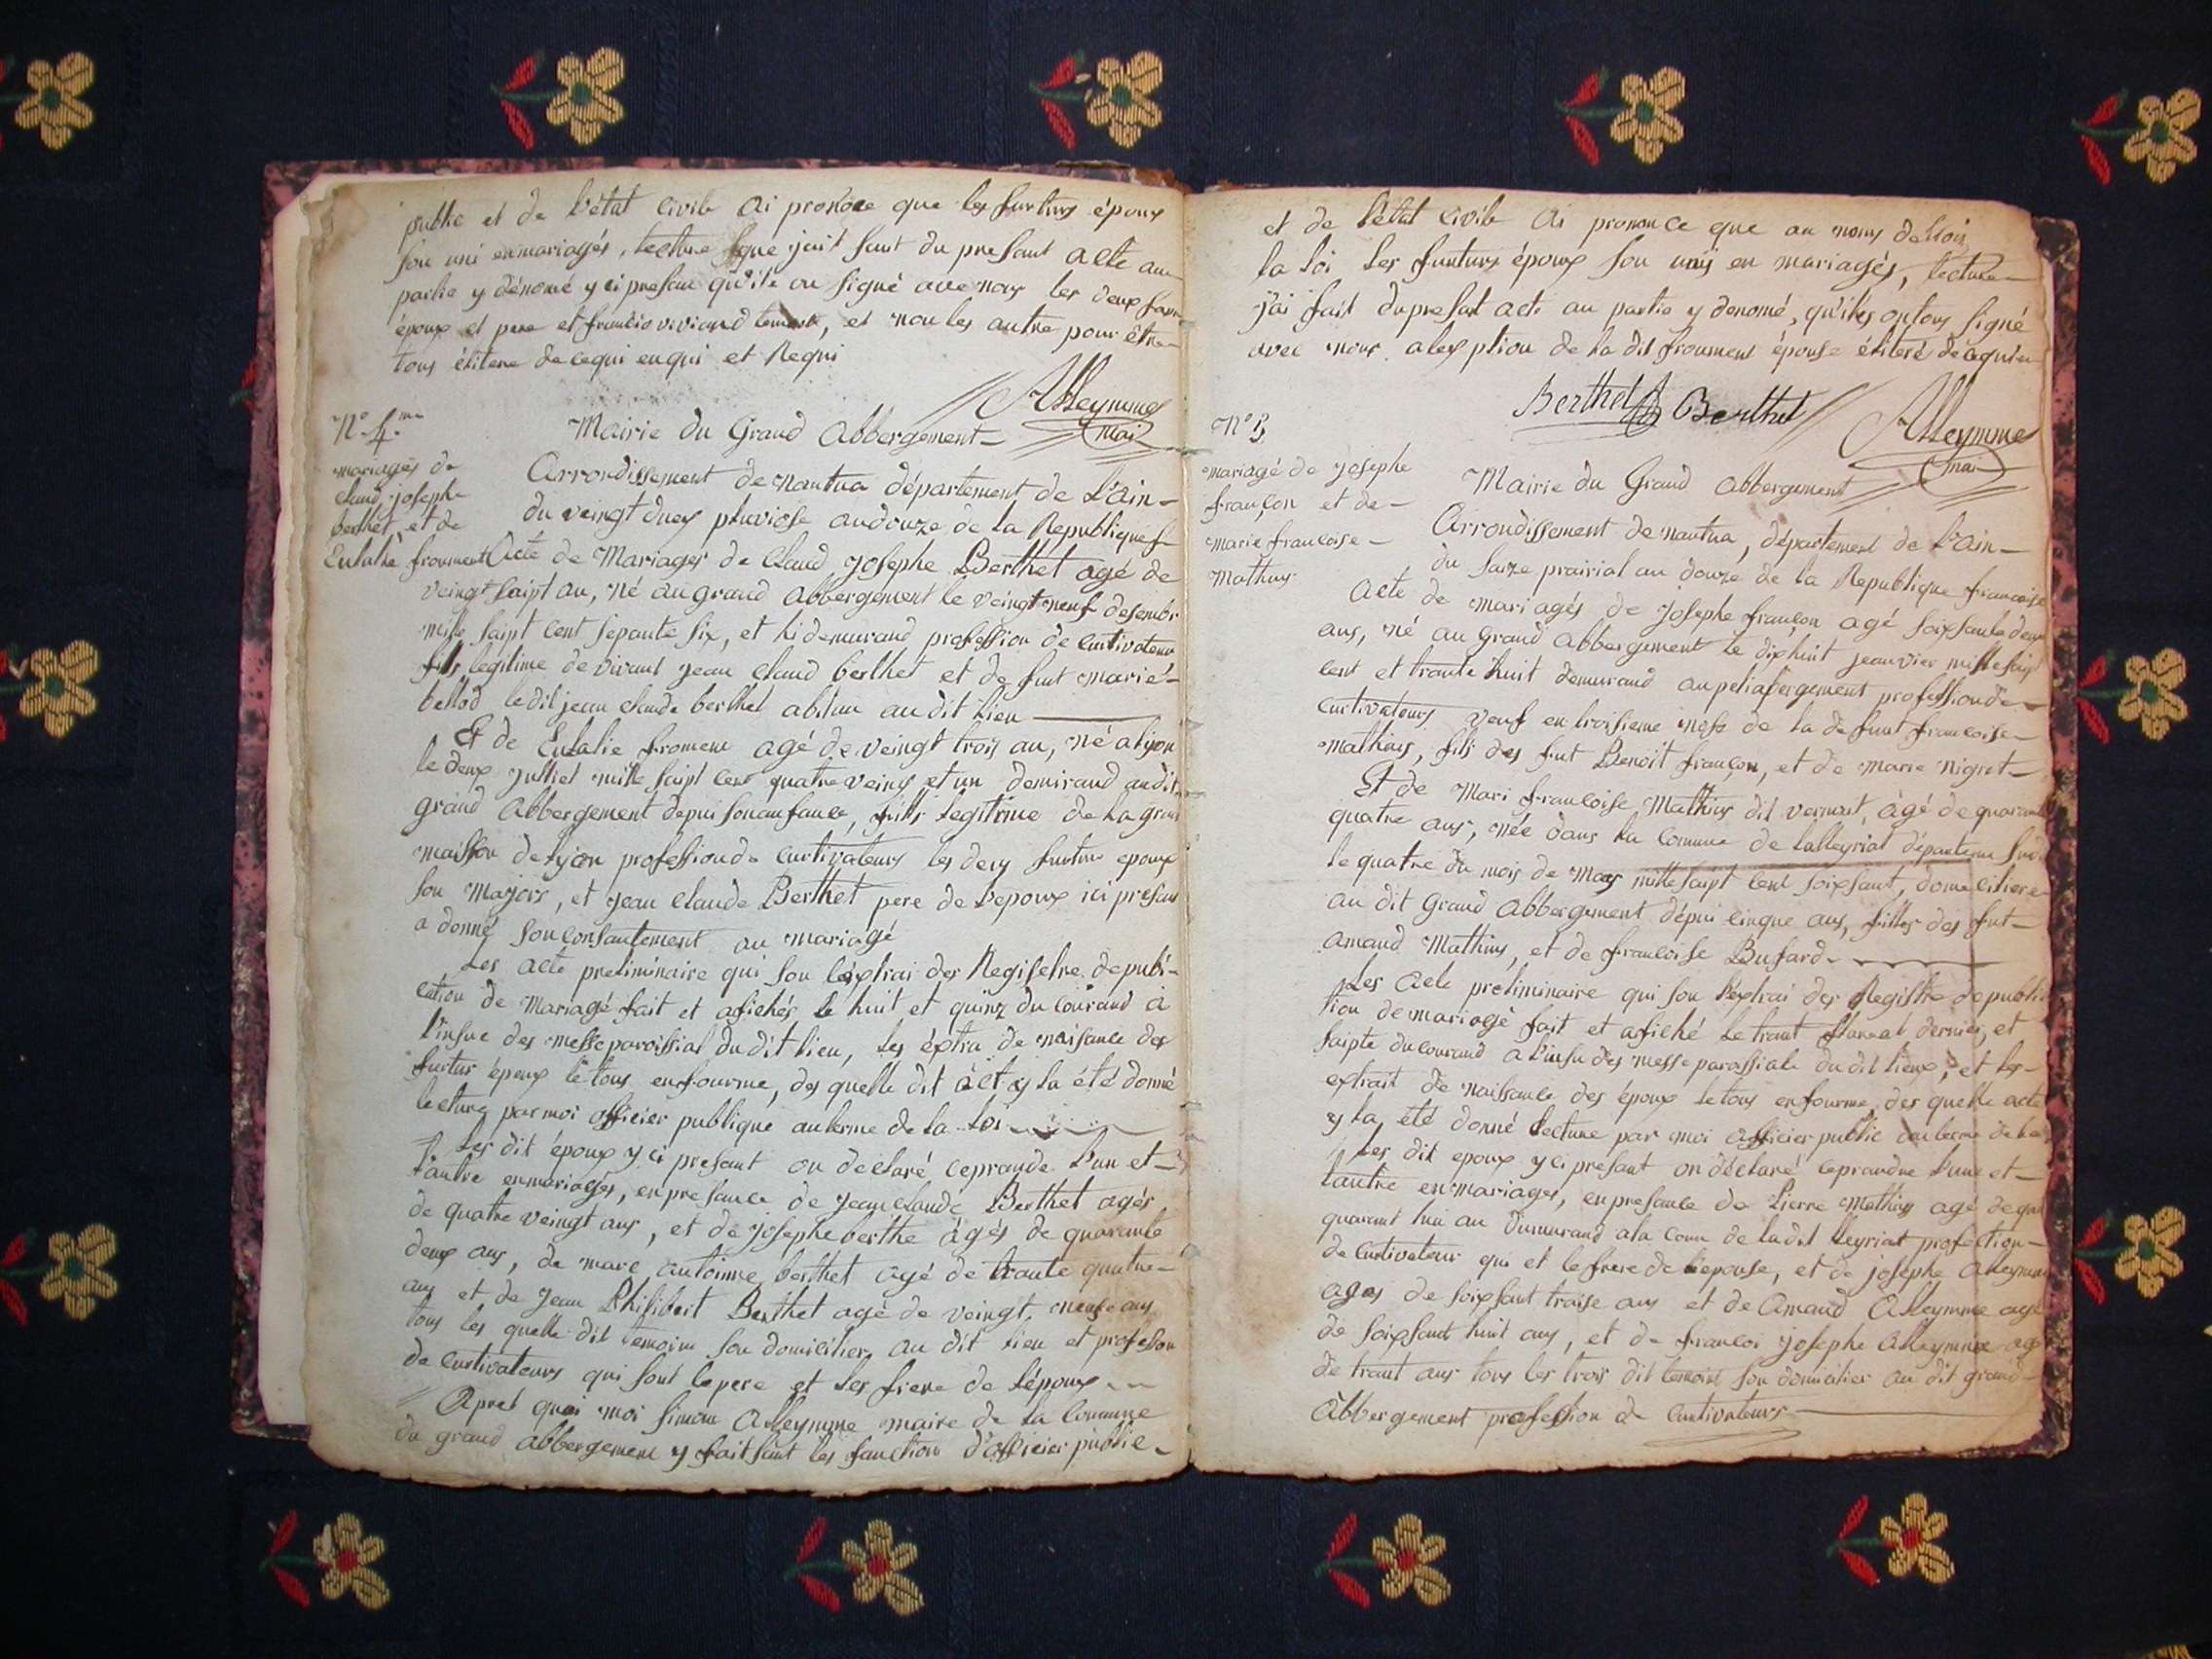 public et de l'état civile ai pronoce que les furturs époux
son uni enmariagés, lecture que jait fait du presant acte au
partie y dénomé y ci presan qu'ils on signé avenous les deux
époux et pere et francio viviand temoin, et non les autre pour être
tous élitere de cequi enqui et Requi
Alleymme
mai
N° 4.me
Mairie du Grand Abbergement
mariagés de
claud josephe
berthet et de
Eulalie froment
Arrondissement de nantua département de L'ain
du veingt duex pluviose andouze de la Republique f
Acte de Mariages de Claud josephe Berthet agé de
veingt saipt an, né augrand abbergement le veingt neuf desembr
mille saipt cent sepante six, et hi demurand profession de cultivateur
fils legitime de vivant jean claud berthet et de funt marié
bellod ledit jean claude berthet abitan au dit lieu
Et de Eulalie fromene agé de veingt trois an, né alyon
le deux julliet mille saipt cent quatre veing et un demirand audit
grand Abbergement depui son anfance, fills legitime de la grand
maison de lyon profession de cultivateurs les deux furturs epoux
son majors, et jean claude Berthet pere de l'epoux ici presant
a donné son consantement au mariagé
Les acte preliminaire qui son l'éxptrai des Registre de publi-
cation de mariagé fait et afichés le huit et quinz du courand à
l'insue des messe paroissial du dit lieu, les éxtra de naisance des
furtur époux le tous enfourme, des quelle dit act y la été donné
lecture par moi officier publique anterme de la Loi
Les dit époux y ci presant on déclaré ceprande l'un et
l'autre enmariages, enpresance de jean claude Berthet agés
de quatre veingt ans, et de josephe berthe àgés de quarante
deux ans, de marc antoinne berthet agé de trante quatre
ans et de jean Philibert Berthet agé de veingt neuf ans
tous les quelle dit temoins son domicilier au dit lieu et profession
de cultivateurs qui sont le pere et les frere de l'époux
Apret quoi moi simon Alleymme maire de la Commune
du grand abbergement y faitsant les fonction d'officier public
et de l'état civile ai prononce que au noms de
la loi les furturs époux son unis en mariagés, lecture
j'ai fait dupresat acte au partie y denomé, qu'iles on tous signé
avec nous alexption de la dit froument épouse élitere de
Berthet Berthet
Alleymme
mai
N° 5
mariagé de josephe
françon et de
marie francoise
Mathius
Mairie du Grand Abbergement
Arrondissement de nantua, département de L'ain
du saize prairial an douze de la Republique francaise
Acte de mariagés de josephe françon agé soixsante deux
ans, né au grand abbergement le dixhuit jeanvier mille saipt
cent et trante huit demurand aupetiabergement professionde
cultivateurs veuf en troisieme noss de la defunt francoise
mathius, fils des funt Benoit françon, et de marie nigret
Et de Mari francoise Mathius dit vernait, àgé de quarante
quatre ans, née dans la comune de lalleyriat département
le quatre du mois de mars mille saipt cent soixsant, domicilier
au dit Grand abbergement dépui cinque ans, filles des funt
amand Mathius, et de francoise Bufard
Les acte preliminaire qui son l'éxptrai des Registre depublica
tion de mariagé fait et afiché le trant floreal dernier et
saipte du courand a l'insu des messe parossiale du dit lieux, et les
extrait de naissance des époux le tous enfourme, des quelle acte
y la été donné lecture par moi officier public anterme de la
Les dit epoux y ci presant on déclaré ceprandre l'une et
l'autre en mariages, enpresance de Pierre Mathius agé de
quarant hui an dumurand ala comu de ladit lleyriat profection
de cultivateur qui et le frere de l'épouse, et de josephe Alleymme
ages de soixsant traise ans et de Amand Alleymme agé
de soixsant huit ans, et de francoi josephe Alleymme agé
de trant ans tous les trois dit temoins son domicilier au dit grand
Abbergement profession de cultivateurs